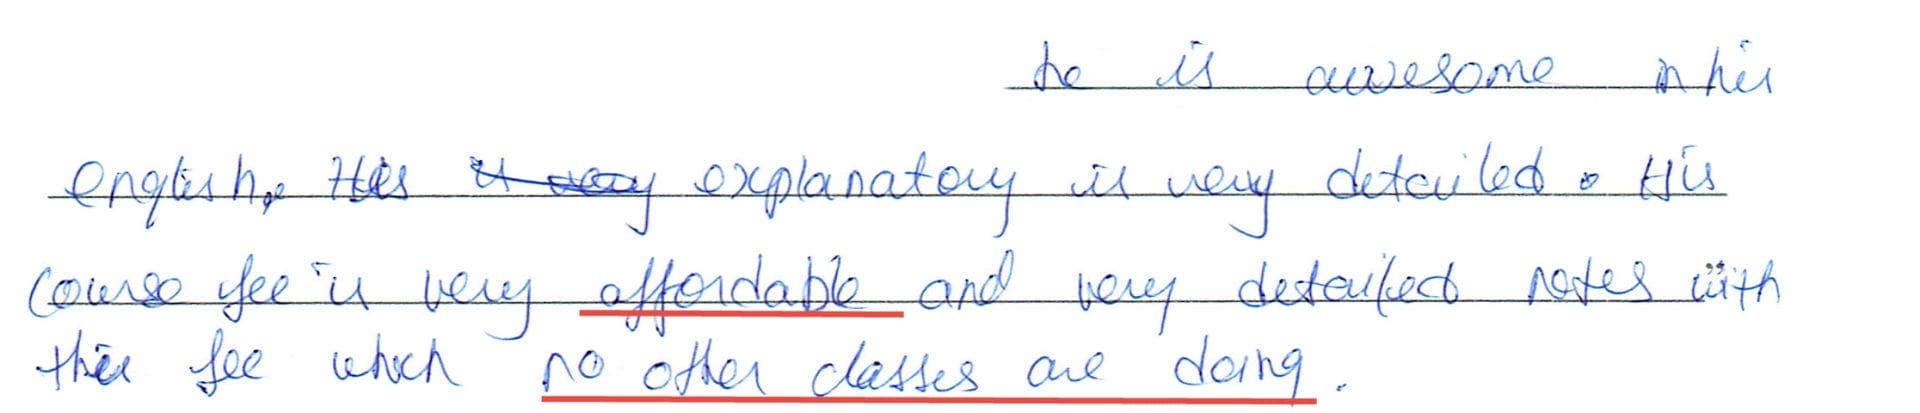 he is awesome in his
english. His explanatory is very detailed. His
course fee is very affordable and very detailed notes with
this fee which no other classes are doing.